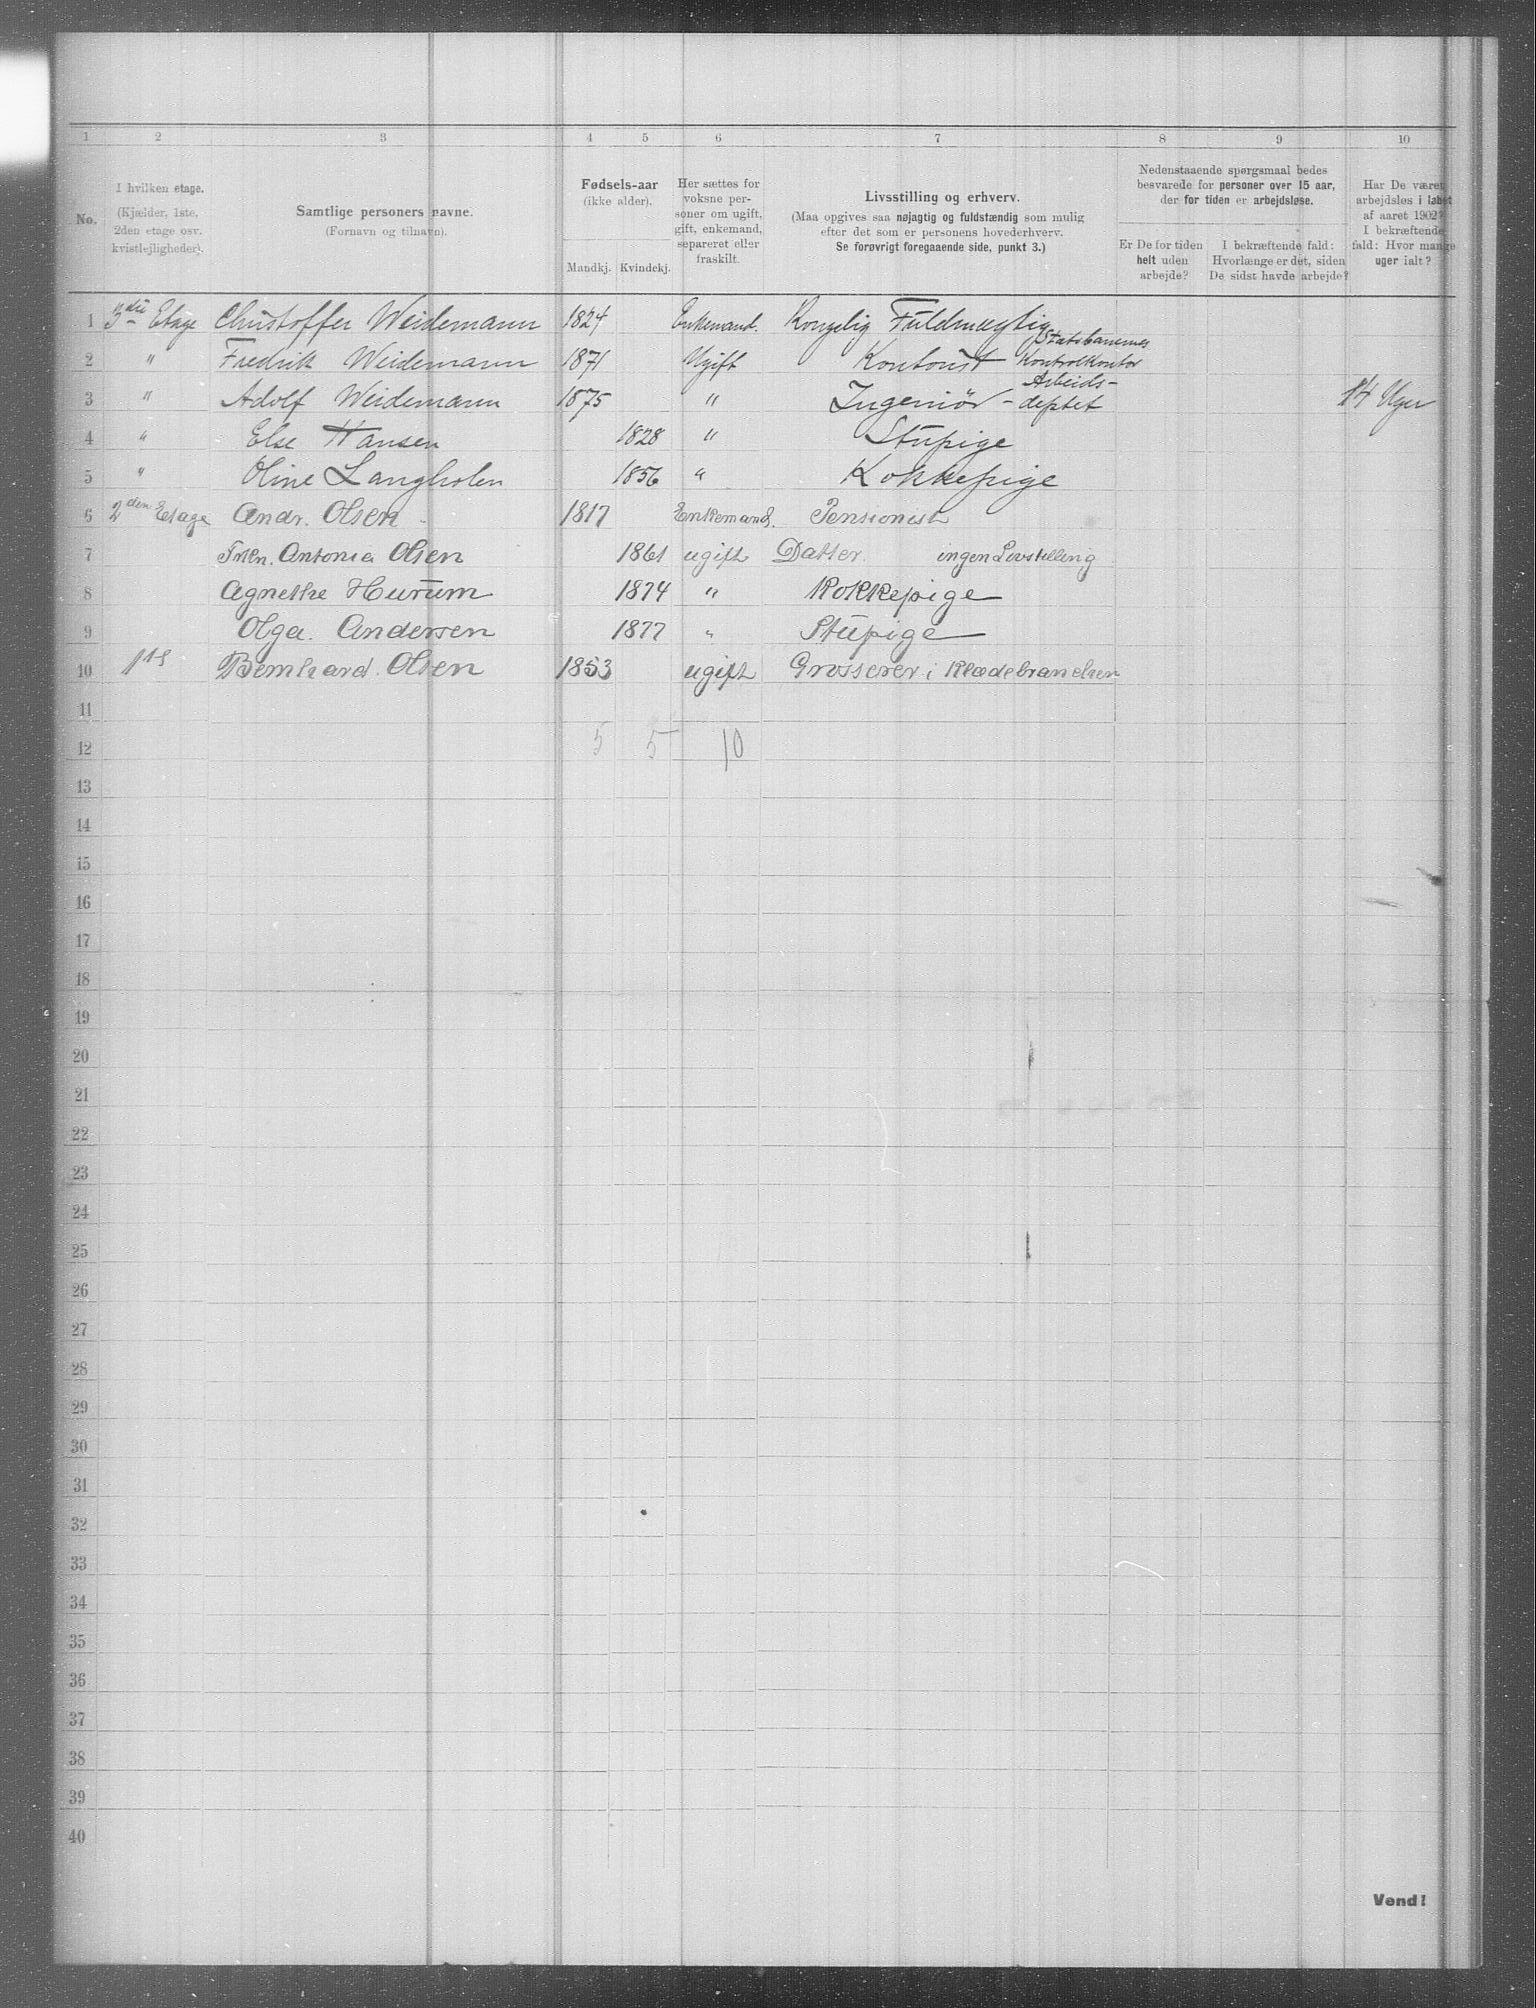 1 2 3 4 5 6 7 8 9 10
No.
I hvilken etage.
(Kjælder, 1ste,
2den etage osv.
kvistlejligheder).
Samtlige personers navne.
(Fornavn og tilnavn).
Fødsels-aar
(ikke alder).
Mandkj. Kvindekj.
Her sættes for
voksne per-
soner om ugift,
gift, enkemand,
separeret eller
fraskilt.
Livsstilling og erhverv.
(Maa opgives saa nøjagtig og fuldstændig som mulig
efter det som er personens hovederhverv.
Se forøvrigt foregaaende side, punkt 3.)
Nedenstaaende spørgsmaal bedes
besvarede for personer over 15 aar,
der for tiden er arbejdsløse.
Er De for tiden
helt uden
arbejde?
I bekræftende fald:
Hvorlænge er det, siden
De sidst havde arbejde?
Har De været
arbejdsløs i løbet
af aaret 1902?
I bekræftende
fald: Hvor mange
uger ialt?
1 3die Etage Christoffer Weidemann 1824 Enkemand. Kongelig Fuldmægtig
2 " Fredrik Weidemann 1871 Ugift Kontorist Statsbanernes Kontrolkontor
3 " Adolf Weidemann 1875 " Ingeniør - Arbeids-deptet 14 Uger
4 " Else Hansen 1828 " Stupige
5 " Oline Langholen 1856 " Kokkepige
6 2den Etage Andr. Olsen 1817 Enkemand. Pensionist
7 Frkn. Antonia Olsen 1861 ugift Datter. ingen Livstilling
8 Agnethe Hurum 1874 " Kokkepige
9 Olga. Andersen 1877 " Stupige
10 1ste Bernhard. Olsen 1853 ugift Grosserer i Klædebranchen
11
12 5 5 10
13
14
15
16
17
18
19
20
21
22
23
24
25
26
27
28
29
30
31
32
33
34
35
36
37
38
39
40
Vend!